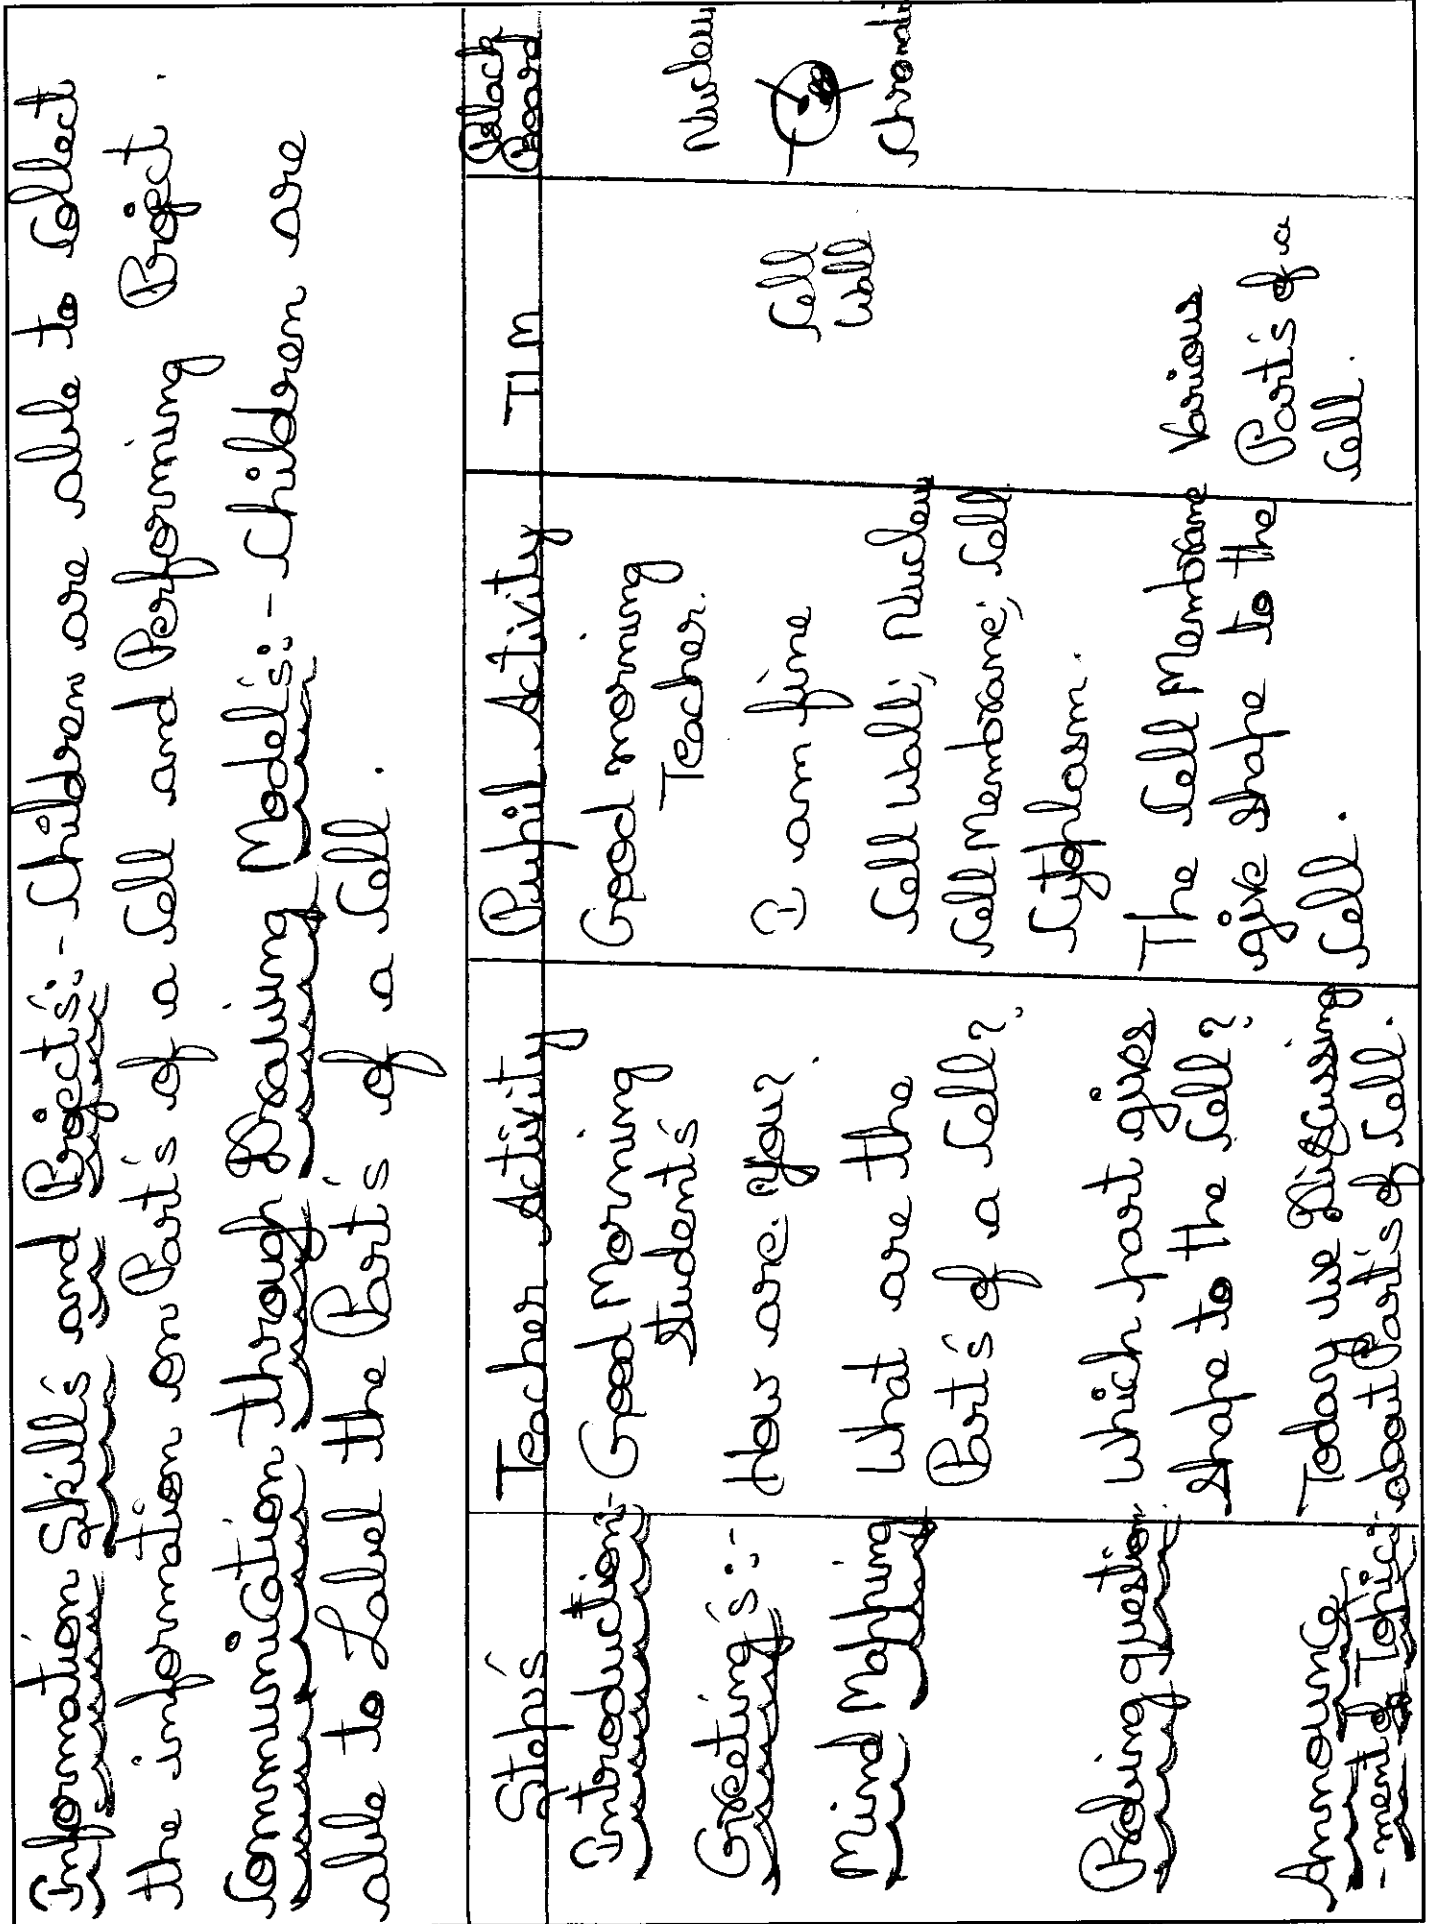 Information Skill's and Project's:- Children are able to Collect
the information on Part's of a Cell and Performing Project.
Communication through Drawing Model's:- Children are
able to Label the Part's of a Cell.
Step's
Teacher Activity
Pupil Activity
TLM
Black Board
Introduction:-
Good Morning
Students
Good morning
Teacher.
Greeting's:-
How are You?
I am fine
Mind Mapping
What are the
Part's of a Cell?
Cell Wall, Nucleus
Cell Membrane, Cell
Cytoplasm.
Cell
Wall
Nucleus
Chromati
Probing question
Which part gives
shape to the Cell?
The Cell Membrane
give shape to the
Cell.
Various
Part's of a
Cell.
Announce
-ment of Topic:
Today we Discussing
about Part's of Cell.